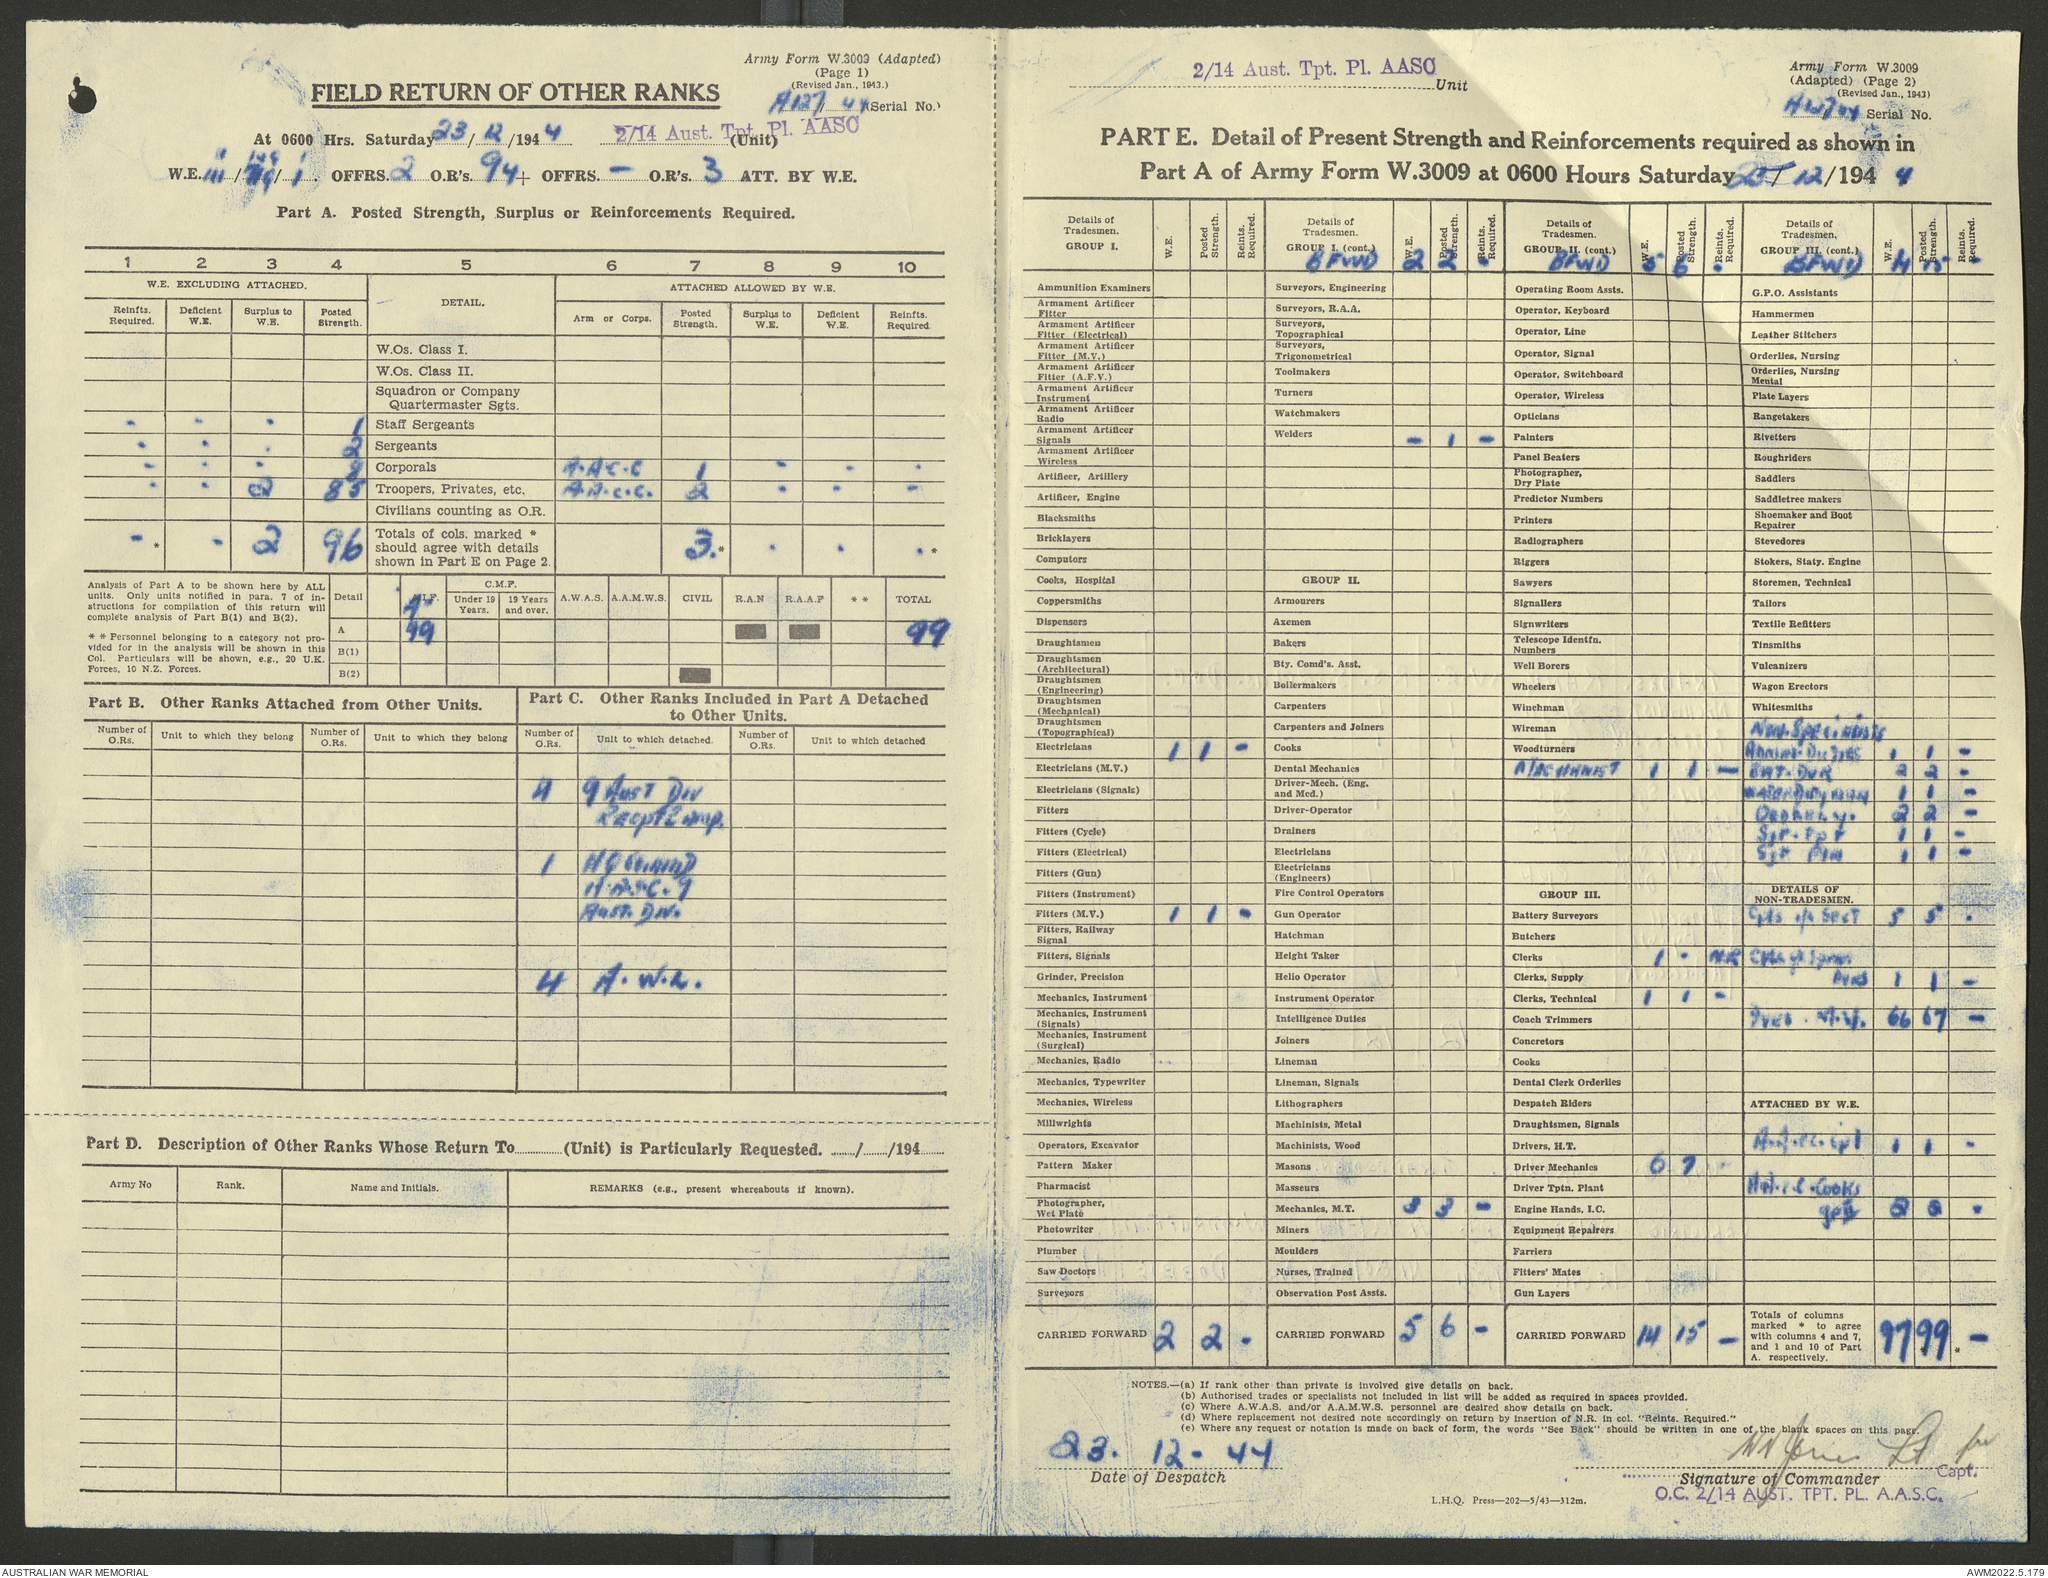 Army Form W.3009 (Adapted)
(Page 1)
(Revised Jan., 1943.)
FIELD RETURN OF OTHER RANKS
A127/44 (Serial No.)
At 0600 Hrs. Saturday 23/12/1944 2/14 Aust. Tpt. Pl. AASC (Unit)
W.E. III/ /1. OFFRS. 2 O.R's. 94 + OFFRS. - O.R's. 3 ATT. BY W.E.
Part A. Posted Strength, Surplus or Reinforcements Required.
1 2 3 4 5 6 7 8 9 10
W.E. EXCLUDING ATTACHED. DETAIL. ATTACHED ALLOWED BY W.E.
Reinfts. Required. Deficient W.E. Surplus to W.E. Posted Strength. Arm or Corps. Posted Strength. Surplus to W.E. Deficient W.E. Reinfts. Required.
W.Os. Class I.
W.Os. Class II.
Squadron or Company
Quartermaster Sgts.
- - - 1 Staff Sergeants
- - - 2 Sergeants
- - - 8 Corporals A.A.C.C 1 - - -
- - 2 85 Troopers, Privates, etc. A.A.C.C. 2 - - -
Civilians counting as O.R.
- * - 2 96 Totals of cols. marked * should agree with details shown in Part E on Page 2. 3. * - - - *
Analysis of Part A to be shown here by ALL units. Only units notified in para. 7 of instructions for compilation of this return will complete analysis of Part B(1) and B(2).
* * Personnel belonging to a category not provided for in the analysis will be shown in this Col. Particulars will be shown, e.g., 20 U.K. Forces, 10 N.Z. Forces.
Detail A.I.F. C.M.F. Under 19 Years. 19 Years and over. A.W.A.S. A.A.M.W.S. CIVIL R.A.N R.A.A.F * * TOTAL
A 99 99
B(1)
B(2)
Part B. Other Ranks Attached from Other Units.
Part C. Other Ranks Included in Part A Detached to Other Units.
Number of O.Rs. Unit to which they belong Number of O.Rs. Unit to which they belong Number of O.Rs. Unit to which detached. Number of O.Rs. Unit to which detached
4 9 Aust Div
Recept Camp.
1 HQ Command
A.A.S.C. 9
Aust. Div.
4 A.W.L.
Part D. Description of Other Ranks Whose Return To (Unit) is Particularly Requested. / /194
Army No Rank. Name and Initials. REMARKS (e.g., present whereabouts if known).
2/14 Aust. Tpt. Pl. AASC Unit
Army Form W.3009
(Adapted) (Page 2)
(Revised Jan., 1943)
A127/44 Serial No.
PART E. Detail of Present Strength and Reinforcements required as shown in
Part A of Army Form W.3009 at 0600 Hours Saturday 23/12/1944
Details of Tradesmen. GROUP I. W.E. Posted Strength. Reints. Required.
Ammunition Examiners
Armament Artificer Fitter
Armament Artificer Fitter (Electrical)
Armament Artificer Fitter (M.V.)
Armament Artificer Fitter (A.F.V.)
Armament Artificer Instrument
Armament Artificer Radio
Armament Artificer Signals
Armament Artificer Wireless
Artificer, Artillery
Artificer, Engine
Blacksmiths
Bricklayers
Computors
Cooks, Hospital
Coppersmiths
Dispensers
Draughtsmen
Draughtsmen (Architectural)
Draughtsmen (Engineering)
Draughtsmen (Mechanical)
Draughtsmen (Topographical)
Electricians 1 1 -
Electricians (M.V.)
Electricians (Signals)
Fitters
Fitters (Cycle)
Fitters (Electrical)
Fitters (Gun)
Fitters (Instrument)
Fitters (M.V.) 1 1 -
Fitters, Railway Signal
Fitters, Signals
Grinder, Precision
Mechanics, Instrument
Mechanics, Instrument (Signals)
Mechanics, Instrument (Surgical)
Mechanics, Radio
Mechanics, Typewriter
Mechanics, Wireless
Millwrights
Operators, Excavator
Pattern Maker
Pharmacist
Photographer, Wet Plate
Photowriter
Plumber
Saw Doctors
Surveyors
CARRIED FORWARD 2 2 -
Details of Tradesmen. GROUP I. (cont.) W.E. Posted Strength. Reints. Required.
BFWD 2 2 -
Surveyors, Engineering
Surveyors, R.A.A.
Surveyors, Topographical
Surveyors, Trigonometrical
Toolmakers
Turners
Watchmakers
Welders - 1 -
GROUP II.
Armourers
Axemen
Bakers
Bty. Comd's. Asst.
Boilermakers
Carpenters
Carpenters and Joiners
Cooks
Dental Mechanics
Driver-Mech. (Eng. and Med.)
Driver-Operator
Drainers
Electricians
Electricians (Engineers)
Fire Control Operators
Gun Operator
Hatchman
Height Taker
Helio Operator
Instrument Operator
Intelligence Duties
Joiners
Lineman
Lineman, Signals
Lithographers
Machinists, Metal
Machinists, Wood
Masons
Masseurs
Mechanics, M.T. 3 3 -
Miners
Moulders
Nurses, Trained
Observation Post Assts.
CARRIED FORWARD 5 6 -
Details of Tradesmen. GROUP II. (cont.) W.E. Posted Strength. Reints. Required.
BFWD 5 6 -
Operating Room Assts.
Operator, Keyboard
Operator, Line
Operator, Signal
Operator, Switchboard
Operator, Wireless
Opticians
Painters
Panel Beaters
Photographer, Dry Plate
Predictor Numbers
Printers
Radiographers
Riggers
Sawyers
Signallers
Signwriters
Telescope Identfn. Numbers
Well Borers
Wheelers
Winchman
Wireman
Woodturners
1 1 -
GROUP III.
Battery Surveyors
Butchers
Clerks 1 - N.R
Clerks, Supply
Clerks, Technical 1 1 -
Coach Trimmers
Concretors
Cooks
Dental Clerk Orderlies
Despatch Riders
Draughtsmen, Signals
Drivers, H.T.
Driver Mechanics 6 7 -
Driver Tptn. Plant
Engine Hands, I.C.
Equipment Repairers
Farriers
Fitters' Mates
Gun Layers
CARRIED FORWARD 14 15 -
Details of Tradesmen. GROUP III. (cont.) W.E. Posted Strength. Reints. Required.
BFWD 14 15 -
G.P.O. Assistants
Hammermen
Leather Stitchers
Orderlies, Nursing
Orderlies, Nursing Mental
Plate Layers
Rangetakers
Rivetters
Roughriders
Saddlers
Saddletree makers
Shoemaker and Boot Repairer
Stevedores
Stokers, Staty. Engine
Storemen, Technical
Tailors
Textile Refitters
Tinsmiths
Vulcanizers
Wagon Erectors
Whitesmiths
Non. Specialists
Admin. Duties 1 1 -
Bat. Dvr 2 2 -
Water Duty Man 1 1 -
Orderly. 2 2 -
Sgt. Tpt 1 1 -
Sgt 1 1 -
DETAILS OF NON-TRADESMEN.
Cpls 5 5 -
1 1 -
Dvrs. M.V. 66 67 -
ATTACHED BY W.E.
A.A.C.C. Cpl 1 1 -
A.A.C.C. Cooks
2 2 -
Totals of columns marked * to agree with columns 4 and 7, and 1 and 10 of Part A. respectively. 97 99 * - *
NOTES.—(a) If rank other than private is involved give details on back.
(b) Authorised trades or specialists not included in list will be added as required in spaces provided.
(c) Where A.W.A.S. and/or A.A.M.W.S. personnel are desired show details on back.
(d) Where replacement not desired note accordingly on return by insertion of N.R. in col. "Reints. Required."
(e) Where any request or notation is made on back of form, the words "See Back" should be written in one of the blank spaces on this page.
23. 12 - 44
Date of Despatch
Jones Lt for
Signature of Commander Capt.
O.C. 2/14 AUST. TPT. PL. A.A.S.C.
L.H.Q. Press—202—5/43—312m.
AUSTRALIAN WAR MEMORIAL
AWM2022.5.179